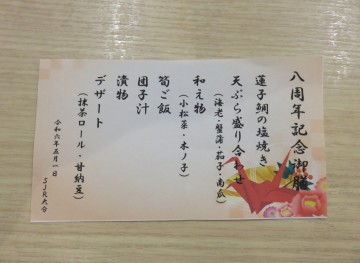 八周年記念御膳
蓮子鯛の塩焼き
天ぷら盛り合わせ
(海老・蟹蒲・茄子・南瓜)
和え物
(小松菜・木ノ子)
筍ご飯
団子汁
漬物
デザート
(抹茶ロール・甘納豆)
令和六年五月一日
SJR大分